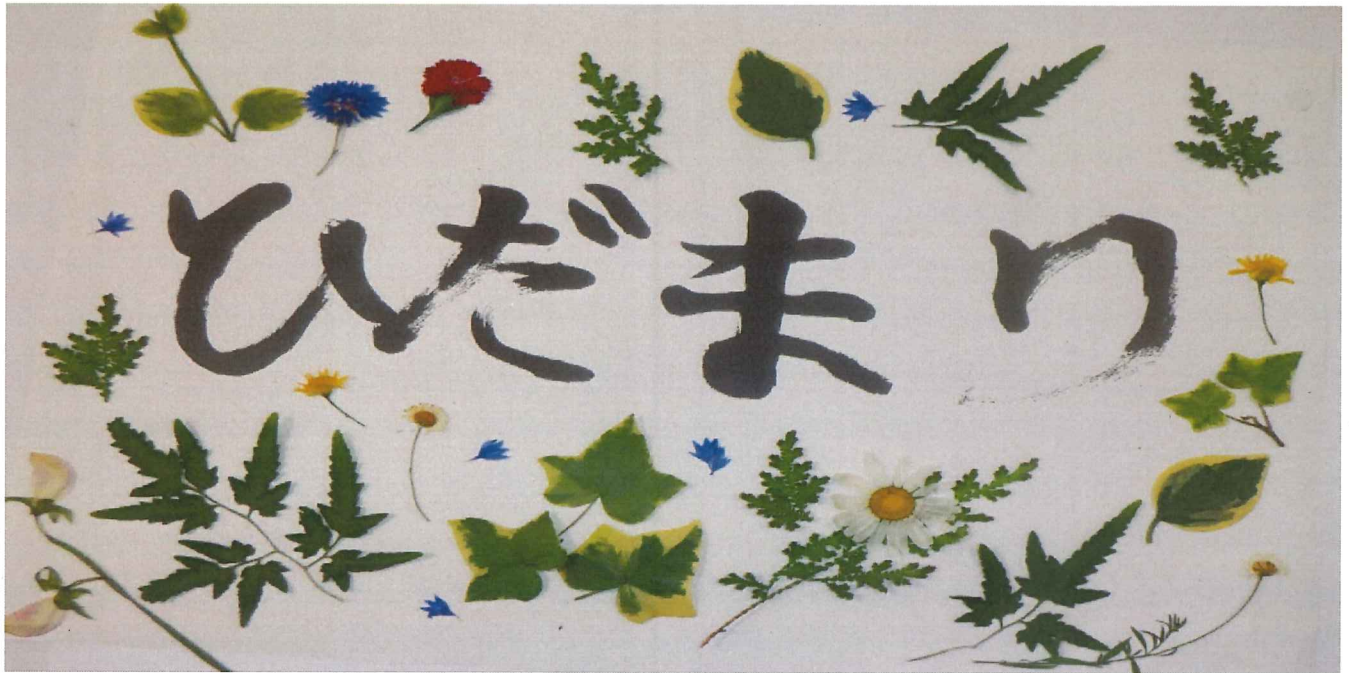 ひだまり